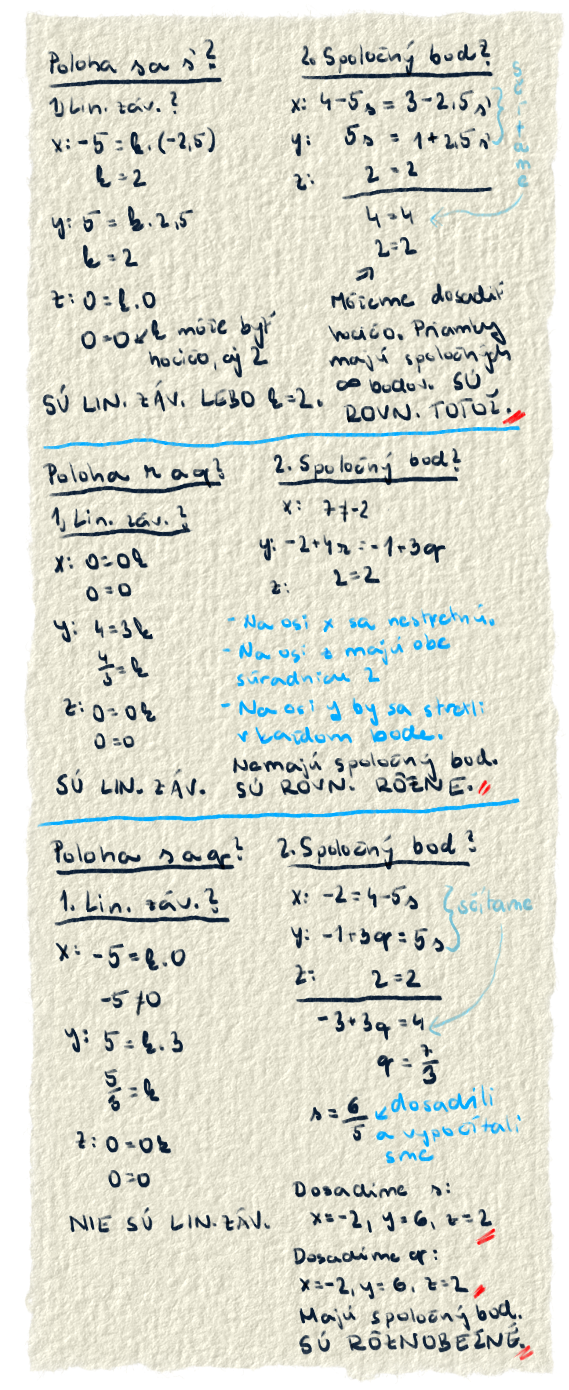 Poloha s a s'?
1) Lin. záv.?
x: -5 = k.(-2,5)
k = 2
y: 5 = k.2,5
k = 2
z: 0 = k.0
0=0 ↙ k môže byť
hocičo, aj 2
SÚ LIN. ZÁV. LEBO k=2.
2. Spoločný bod?
x: 4-5s = 3-2,5s'
y: 5s = 1+2,5s'
z: 2 = 2
4 = 4
2 = 2
Môžeme dosadiť
hocičo. Priamky
majú spoločných
∞ bodov. SÚ
ROVN. TOTOŽ.
Poloha r a q?
1, Lin. záv.?
x: 0=0k
0=0
y: 4=3k
4/3 = k
z: 0=0k
0=0
SÚ LIN. ZÁV.
2. Spoločný bod?
x: 7≠-2
y: -2+4r = -1+3q
z: 2=2
- Na osi x sa nestretnú.
- Na osi z majú obe
súradnicu 2
- Na osi y by sa stretli
v každom bode.
Nemajú spoločný bod.
SÚ ROVN. RÔZNE.
Poloha s a q?
1. Lin. záv.?
x: -5 = k.0
-5≠0
y: 5 = k.3
5/3 = k
z: 0=0k
0=0
NIE SÚ LIN. ZÁV.
2. Spoločný bod?
x: -2 = 4-5s
y: -1+3q = 5s
sčítame
z: 2 = 2
-3+3q = 4
q = 7/3
s = 6/5 ↙ dosadili
a vypočítali
sme
Dosadíme s:
x=-2, y=6, z=2
Dosadíme q:
x=-2, y=6, z=2
Majú spoločný bod.
SÚ RÔZNOBEŽNÉ.